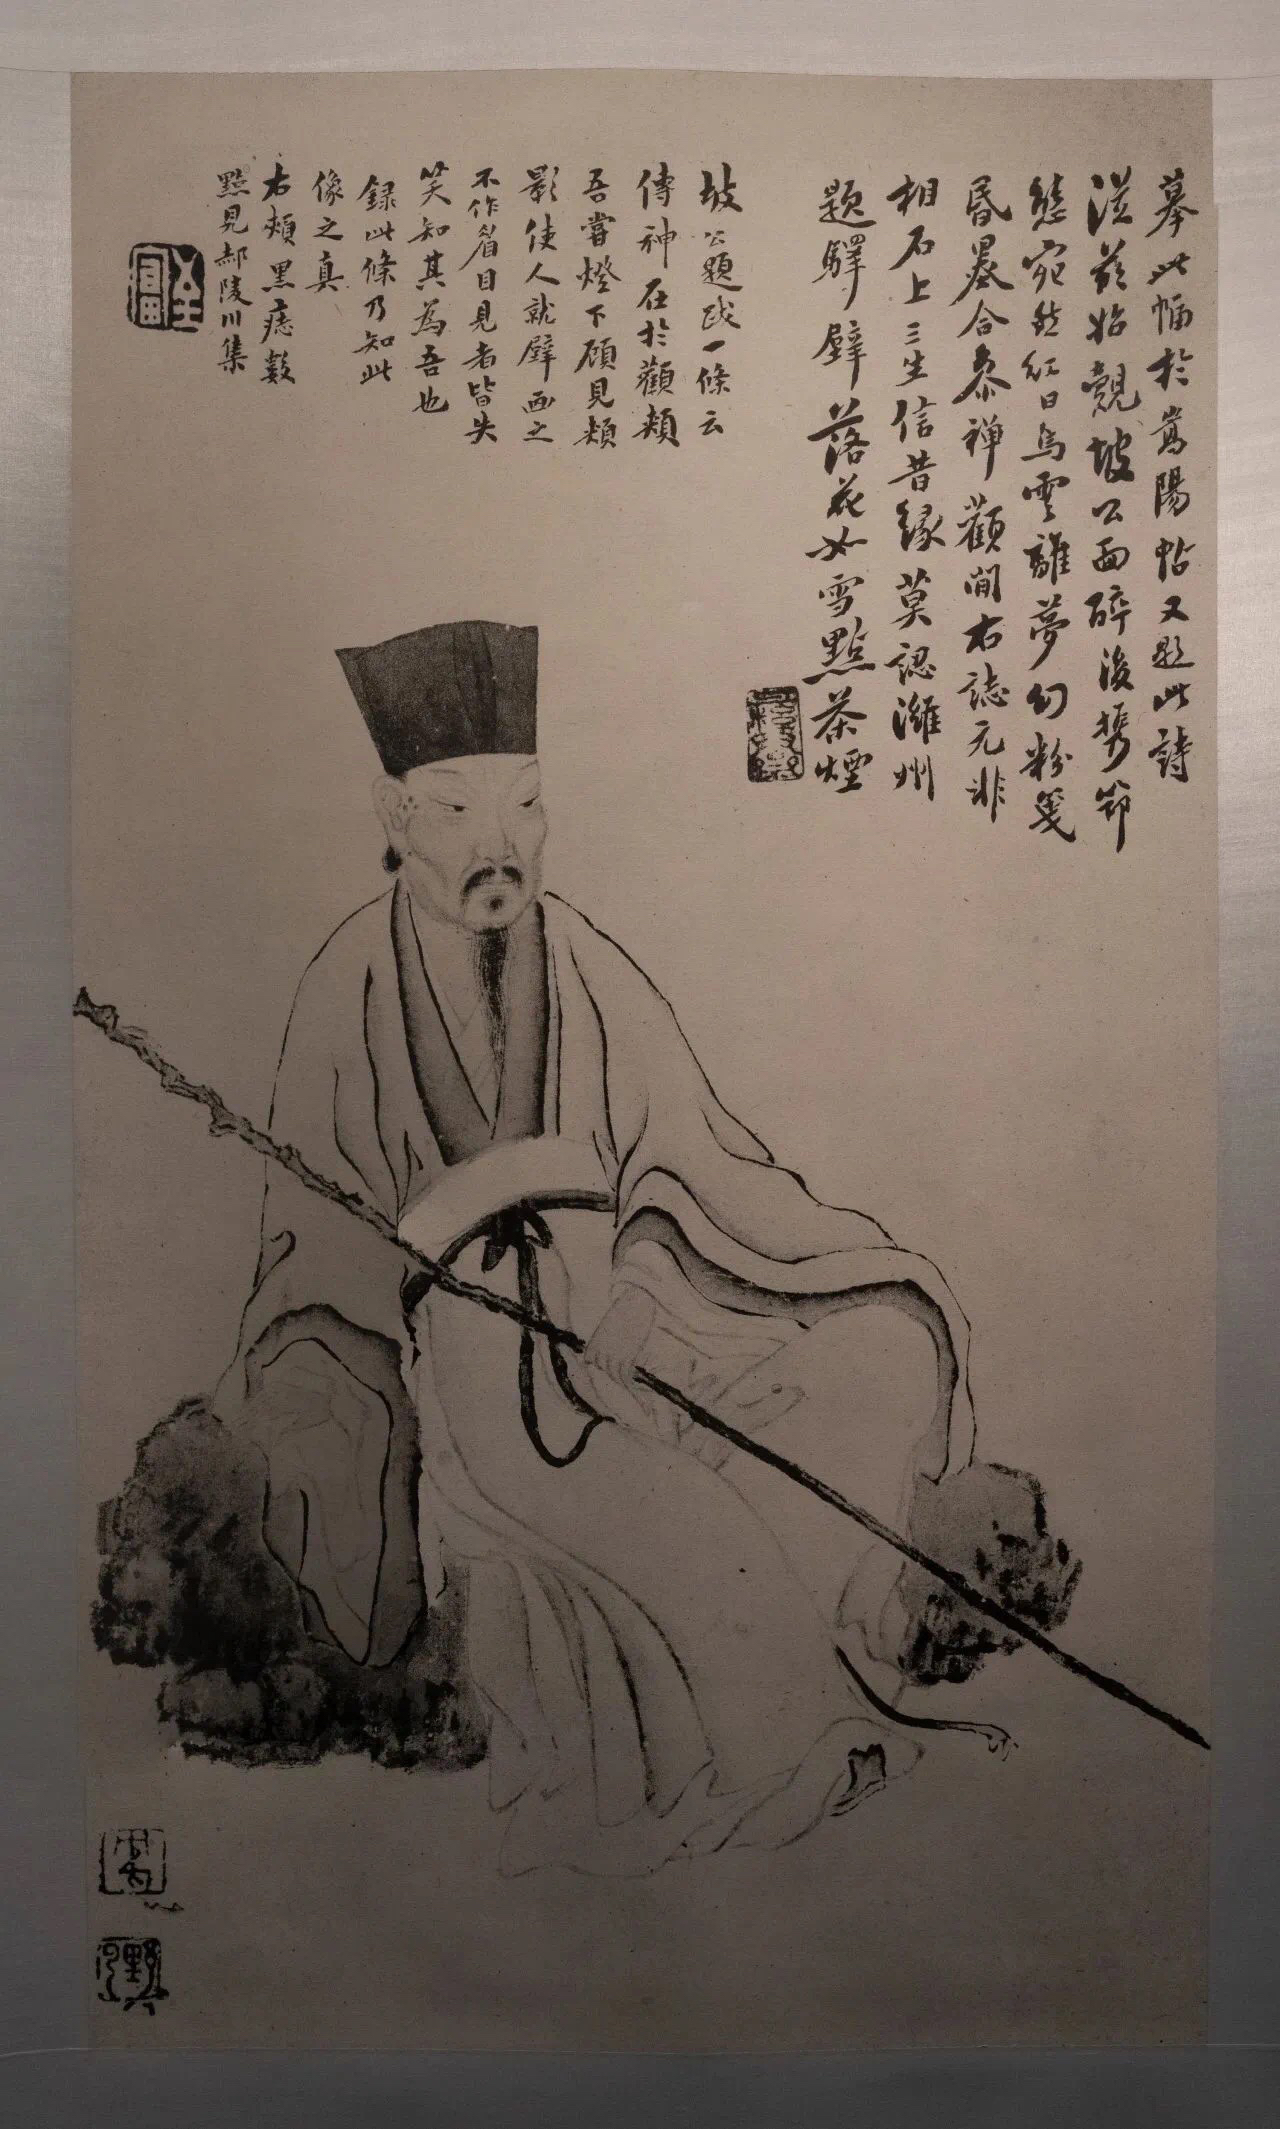 摹此幅於嵩陽帖又題此詩
從茲始覿坡公面醉後携笻
態宛然紅日烏雲離夢幻粉箋
昏墨合參禪顴間右誌元非
相石上三生信昔緣莫認濰州
題驛壁落花如雪點茶煙
坡公題跋一條云
傳神在於顴頰
吾嘗燈下顧見頰
影使人就壁畫之
不作眉目見者皆失
笑知其為吾也
録此條乃知此
像之真
右頰黑痣數
點見郝陵川集